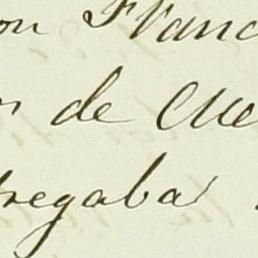 on Franc
de Me
regaba